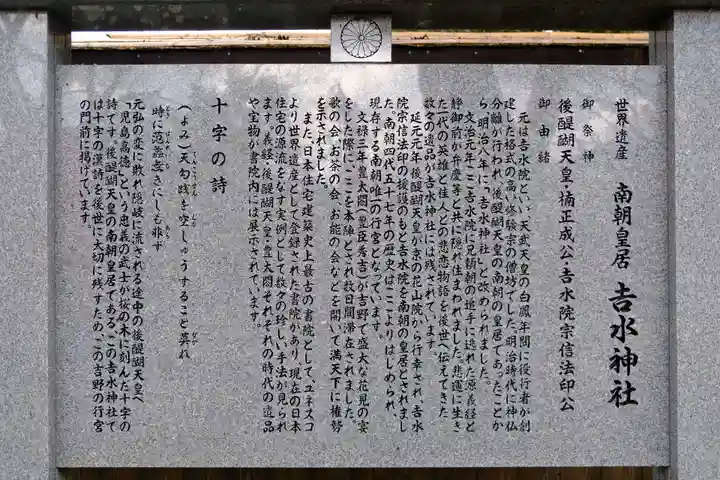 世界遺産 南朝皇居 𠮷水神社
御祭神
後醍醐天皇・楠正成公・𠮷水院宗信法印公
御由緒
元は𠮷水院といい、天武天皇の白鳳年間に役行者が創
建した格式の高い修験宗の僧坊でした。明治時代に神仏
分離が行われ、後醍醐天皇の南朝の皇居であったことか
ら、明治八年に「𠮷水神社」と改められました。
文治元年、ここ𠮷水院に兄頼朝の追手に逃れた源義経と
静御前が弁慶等と共に隠れ住まわれました。悲運に生き
た一代の英雄と佳人との悲恋物語を後世へ伝えてきた
数々の遺品が𠮷水神社には残されています。
延元元年後醍醐天皇が京の花山院から行幸され、𠮷水
院宗信法印の援護のもと𠮷水院を南朝の皇居とされまし
た。南朝四代五十七年の歴史はここよりはじめられ、
現存する南朝唯一の行宮となっています。
文禄三年豊太閤（豊臣秀吉）が吉野で盛大な花見の宴
をした際に、ここを本陣とされ数日間滞在されました。
歌の会、お茶の会、お能の会などを開いて満天下に権勢
を示されました。
また、日本住宅建築史上最古の書院として、ユネスコ
より世界遺産として登録された書院があり、現在の日本
住宅の源流をなす実例として数々の珍しい手法が見られ
ます。義経、後醍醐天皇、豊太閤それぞれの時代の遺品
や宝物が書院内には展示されています。
十字の詩
（よみ）天勾践を空しゅうすること莫れ
時に范蠡無きにしも非ず
元弘の変に敗れ隠岐に流される途中の後醍醐天皇へ
「児島高徳」という忠義の武士が桜の木に刻んだ十字の
詩です。後醍醐天皇の南朝皇居である、この𠮷水神社で
は十字の漢詩を後世に大切に残すため、この吉野の行宮
の門前に掲げています。